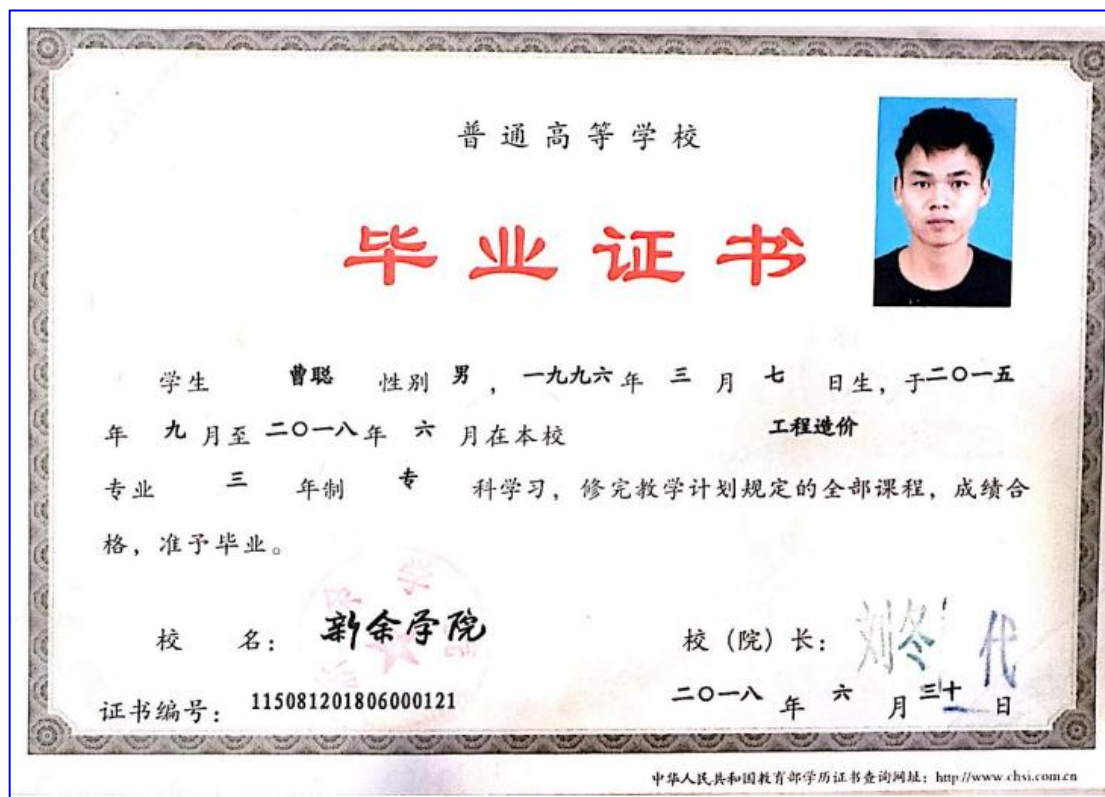 普通高等学校
毕业证书
学生 曹聪 性别 男，一九九六年 三 月 七 日生，于二〇一五
年 九 月至 二〇一八 年 六 月在本校 工程造价
专业 三 年制 专 科学习，修完教学计划规定的全部课程，成绩合
格，准予毕业。
校 名：新余学院 校（院）长：刘冬 代
证书编号：115081201806000121 二〇一八 年 六 月 三十 日
中华人民共和国教育部学历证书查询网址：http://www.chsi.com.cn